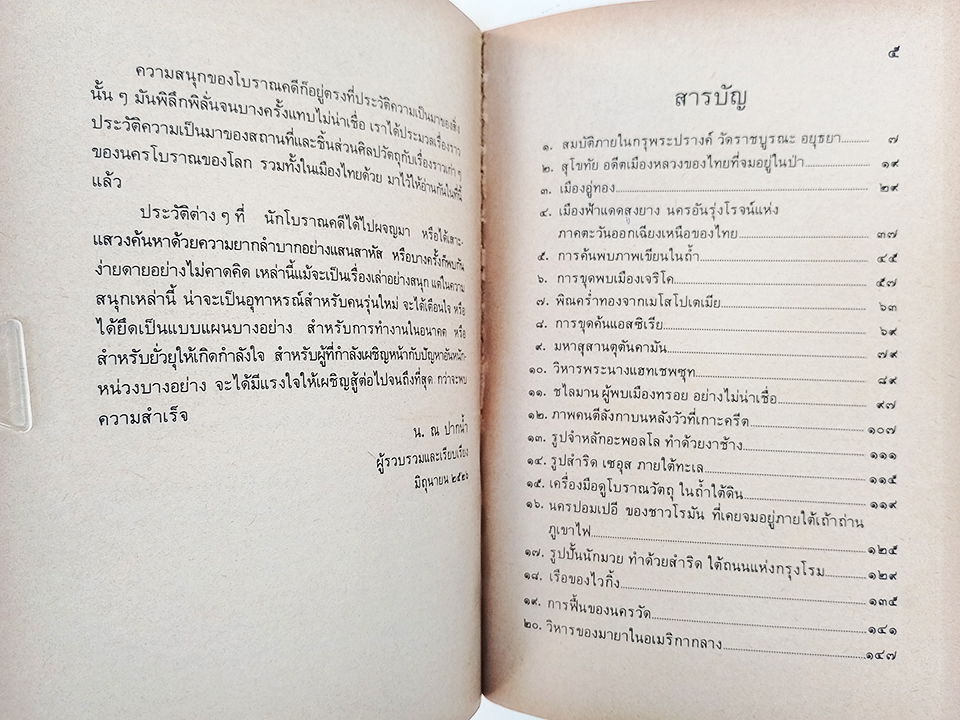 ความสนุกของโบราณคดีก็อยู่ตรงที่ประวัติความเป็นมาของสิ่ง
นั้น ๆ มันพิลึกพิลั่นจนบางครั้งแทบไม่น่าเชื่อ เราได้ประมวลเรื่องราว
ประวัติความเป็นมาของสถานที่และชิ้นส่วนศิลปวัตถุกับเรื่องราวเก่า ๆ
ของนครโบราณของโลก รวมทั้งในเมืองไทยด้วย มาไว้ให้อ่านกันในที่นี้
แล้ว
ประวัติต่าง ๆ ที่ นักโบราณคดีได้ไปผจญมา หรือได้เสาะ-
แสวงค้นหาด้วยความยากลำบากอย่างแสนสาหัส หรือบางครั้งก็พบกัน
ง่ายดายอย่างไม่คาดคิด เหล่านี้แม้จะเป็นเรื่องเล่าอย่างสนุก แต่ในความ
สนุกเหล่านี้ น่าจะเป็นอุทาหรณ์สำหรับคนรุ่นใหม่ จะได้เตือนใจ หรือ
ได้ยึดเป็นแบบแผนบางอย่าง สำหรับการทำงานในอนาคต หรือ
สำหรับยั่วยุให้เกิดกำลังใจ สำหรับผู้ที่กำลังเผชิญหน้ากับปัญหาอันหนัก-
หน่วงบางอย่าง จะได้มีแรงใจให้เผชิญสู้ต่อไปจนถึงที่สุด กว่าจะพบ
ความสำเร็จ
น. ณ ปากน้ำ
ผู้รวบรวมและเรียบเรียง
มิถุนายน ๒๕๒๖
๕
สารบัญ
๑. สมบัติภายในกรุพระปรางค์ วัดราชบูรณะ อยุธยา.......... ๗
๒. สุโขทัย อดีตเมืองหลวงของไทยที่จมอยู่ในป่า.......... ๑๙
๓. เมืองอู่ทอง.......... ๒๙
๔. เมืองฟ้าแดดสูงยาง นครอันรุ่งโรจน์แห่ง
ภาคตะวันออกเฉียงเหนือของไทย.......... ๓๗
๕. การค้นพบภาพเขียนในถ้ำ.......... ๔๕
๖. การขุดพบเมืองเจริโค.......... ๕๗
๗. พิณคร่ำทองจากเมโสโปเตเมีย.......... ๖๓
๘. การขุดค้นแอสซิเรีย.......... ๖๙
๙. มหาสุสานตุตันคามัน.......... ๗๙
๑๐. วิหารพระนางแฮทเชพซุท.......... ๘๙
๑๑. ชไลมาน ผู้พบเมืองทรอย อย่างไม่น่าเชื่อ.......... ๙๗
๑๒. ภาพคนตีลังกาบนหลังวัวที่เกาะครีต.......... ๑๐๗
๑๓. รูปจำหลักอะพอลโล ทำด้วยงาช้าง.......... ๑๑๑
๑๔. รูปสำริด เซอุส ภายใต้ทะเล.......... ๑๑๕
๑๕. เครื่องมือดูโบราณวัตถุ ในถ้ำใต้ดิน.......... ๑๑๙
๑๖. นครปอมเปอี ของชาวโรมัน ที่เคยจมอยู่ภายใต้เถ้าถ่าน
ภูเขาไฟ.......... ๑๒๕
๑๗. รูปปั้นนักมวย ทำด้วยสำริด ใต้ถนนแห่งกรุงโรม.......... ๑๒๙
๑๘. เรือของไวกิ้ง.......... ๑๓๕
๑๙. การฟื้นของนครวัด.......... ๑๔๑
๒๐. วิหารของมายาในอเมริกากลาง.......... ๑๔๗